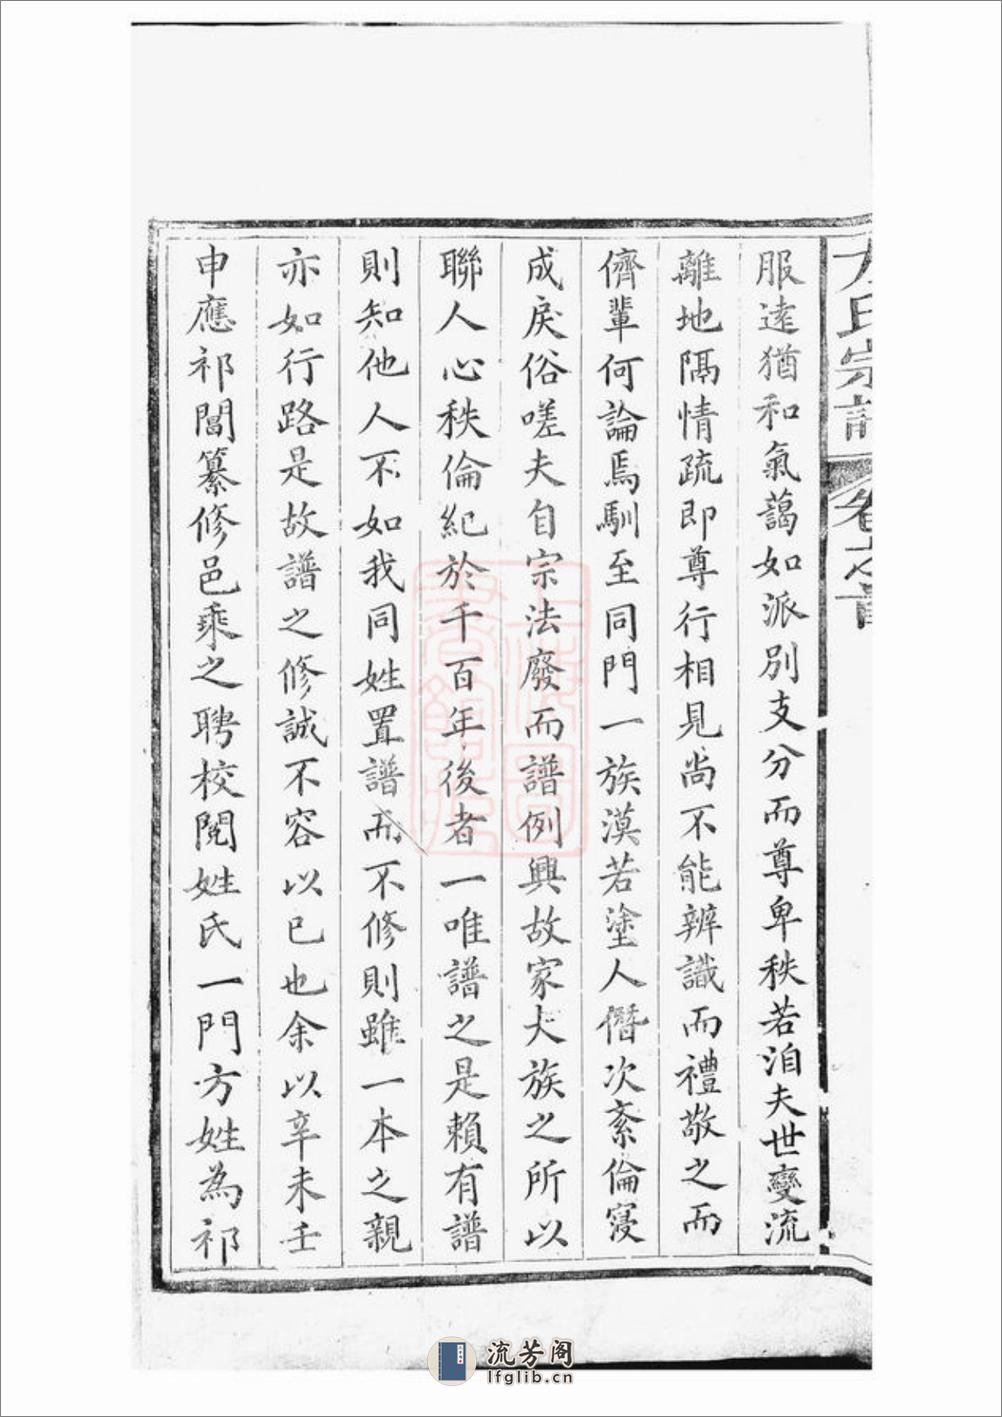 方氏宗譜 卷之首
服遠猶和氣藹如派別支分而尊卑秩若洎夫世變流
離地隔情疏即尊行相見尚不能辨識而禮敬之而
儕輩何論焉馴至同門一族漠若塗人僭次紊倫寖
成戾俗嗟夫自宗法廢而譜例興故家大族之所以
聯人心秩倫紀於千百年後者一唯譜之是賴有譜
則知他人不如我同姓置譜而不修則雖一本之親
亦如行路是故譜之修誠不容以已也余以辛未壬
申應祁閶纂修邑乘之聘校閱姓氏一門方姓為祁
流芳阁
lfglib.cn